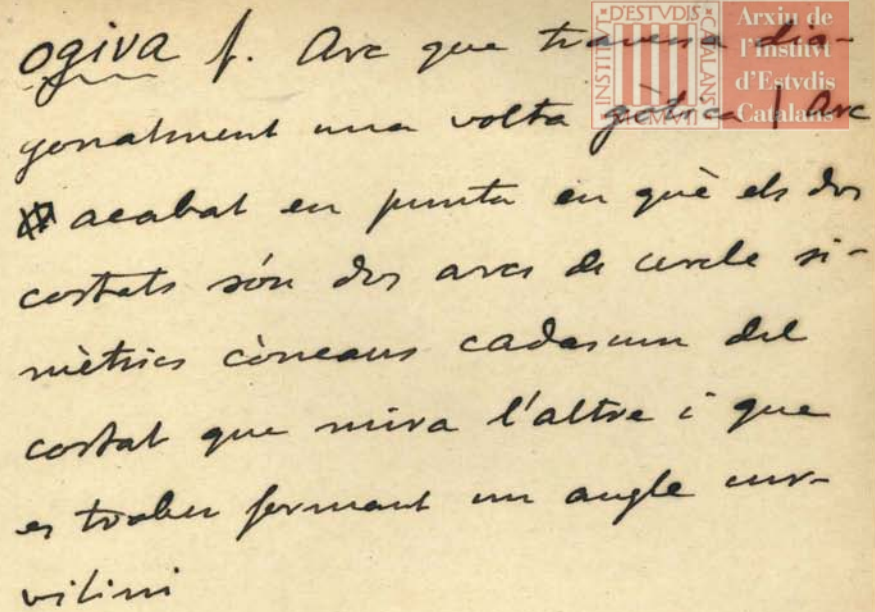 ogiva f. Arc que travessa dia-
gonalment una volta gòtica | Arc
acabat en punta en què els dos
costats són dos arcs de cercle si-
mètrics còncaus cadascun del
costat que mira l'altre i que
es troben formant un angle cur-
vilini
INSTITVT D'ESTVDIS CATALANS MCMVII
Arxiu de
l'Institvt
d'Estvdis
Catalans